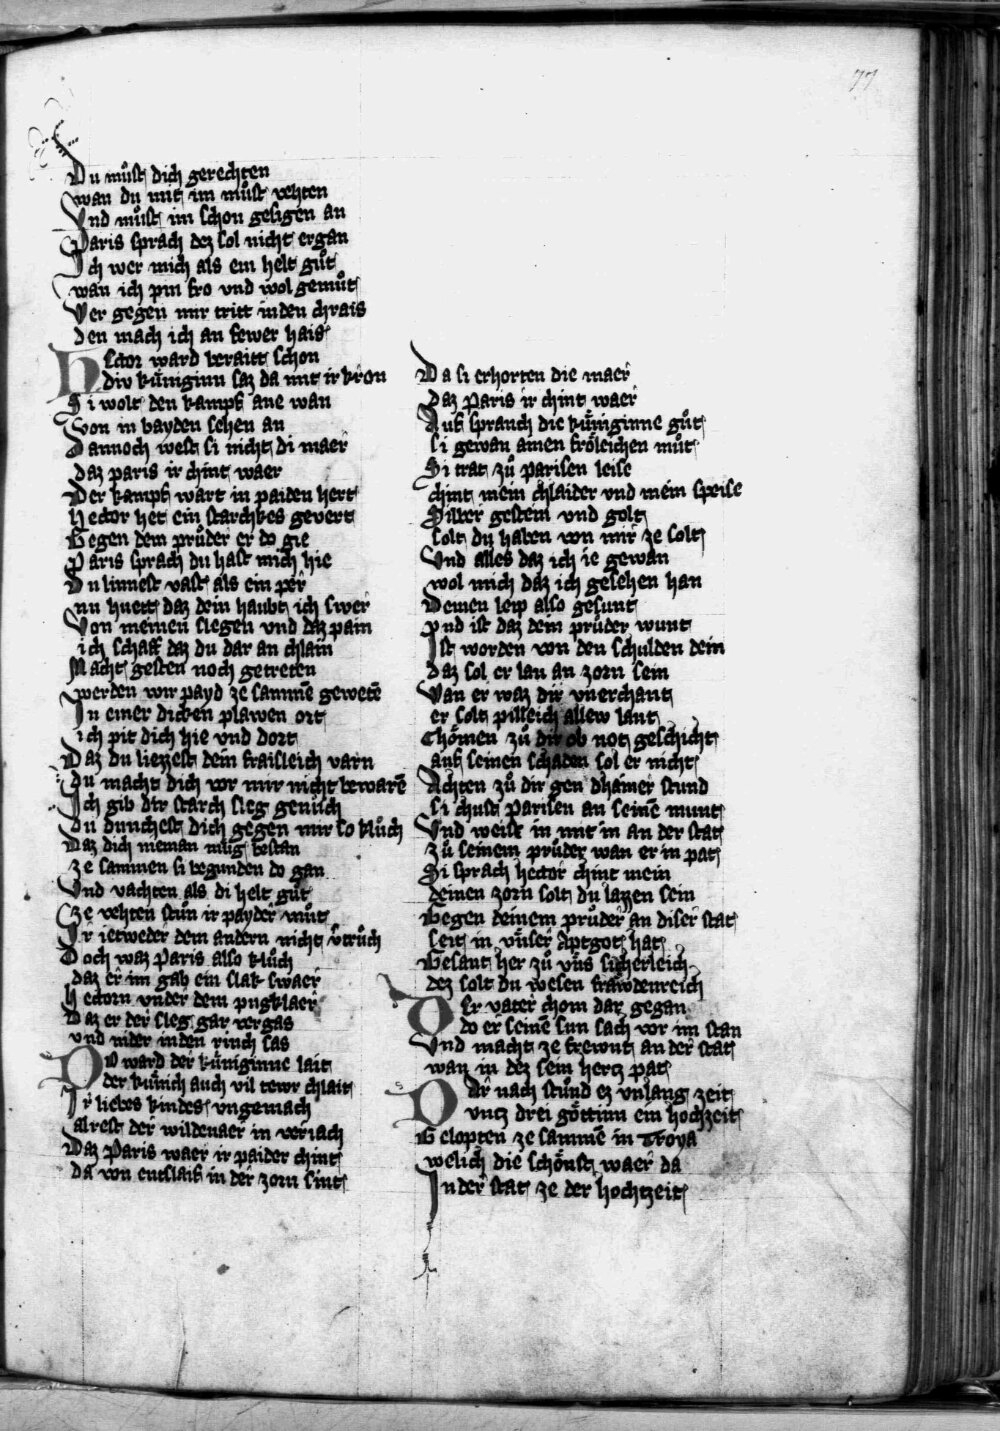 77
Du můst dich gerechten
wan du mit im můst vehten
Vnd můst im schon gesigen an
Paris sprach dez sol nicht ergan
Ich wer mich als ein helt gůt
wan ich pin fro vnd wol gemůt
Wer gegen mir tritt in den chrais
den mach ich an fewer hais
Hector ward beraitt schon
div küniginn saz da mit ir kron
Si wolt den kampf ane wan
Von in bayden sehen an
Dannoch west si nicht di maer
daz paris ir chint waer
Der kampf wart in paiden hert
Hector het ein starchkes gevert
Gegen dem průder er do gie
Paris sprach du hast mich hie
Du limest vast als ein per
nu huett daz dein haubt ich swer
Von meinen slegen vnd daz pain
ich schaff daz du dar an chlain
Macht gesten noch getreten
werden wir payd ze samme gewete
In einer dicken plawen ort
ich pit dich hie vnd dort
Daz du liezzest dein fraisleich varn
du macht dich vor mir nicht beware
Ich gib dir starch sleg genůch
du dunchest dich gegen mir so klůch
Daz dich nieman müg bestan
ze sammen si begunden do gan
Vnd vachten als di helt gůt
ze vehten stůn ir payder můt
Ir ietweder dem andern nicht vtrůch
Doch waz Paris also klůch
daz er im gab ein slak swaer
Hectorn vnder dem pugklaer
Daz er der sleg gar vergas
vnd nider in den rinch sas
Do ward der küniginne lait
der künich auch vil tewr chlait
Ir liebes kindes vngemach
alrest der wildenaer in veriach
Daz Paris waer ir paider chint
da von entslaif in der zorn sint
Da si erhorten die maer
daz Paris ir chint waer
Auf sprauch die küniginne gůt
si gewan ainen fröleichen můt
Si trat zů parisen leise
chint mein chlaider vnd mein speise
Silber gestein vnd golt
solt du haben von mir ze solt
Vnd alles daz ich ie gewan
wol mich daz ich gesehen han
Deinen leip also gesunt
vnd ist daz dein průder wunt
Ist worden von den schulden dein
daz sol er lan an zorn sein
Wan er waz dir vnerchant
er solt pilleich allew lant
Chömen zů dir ob not geschicht
auf seinen schaden sol er nicht
Achten zů dir gen dhainer stund
si chust Parisen an seine munt
Vnd weist in mit in an der stat
zů seinem průder wan er in pat
Si sprach hector chint mein
deinen zorn solt du lazzen sein
Gegen deinem průder an diser stat
seit in vnser Aptgot hat
Gesant her zů vns sicherleich
dez solt du wesen frawdenreich
Der vater chom dar gegan
do er seine sun sach vor im stan
Vnd macht ze frewnt an der stat
wan in dez sein hercz pat
Dar nach stůnd ez vnlang zeit
vncz drei göttinn ein hochzeit
Gelopten ze samme in Troya
welich die schönst waer da
In der stat ze der hochtzeit